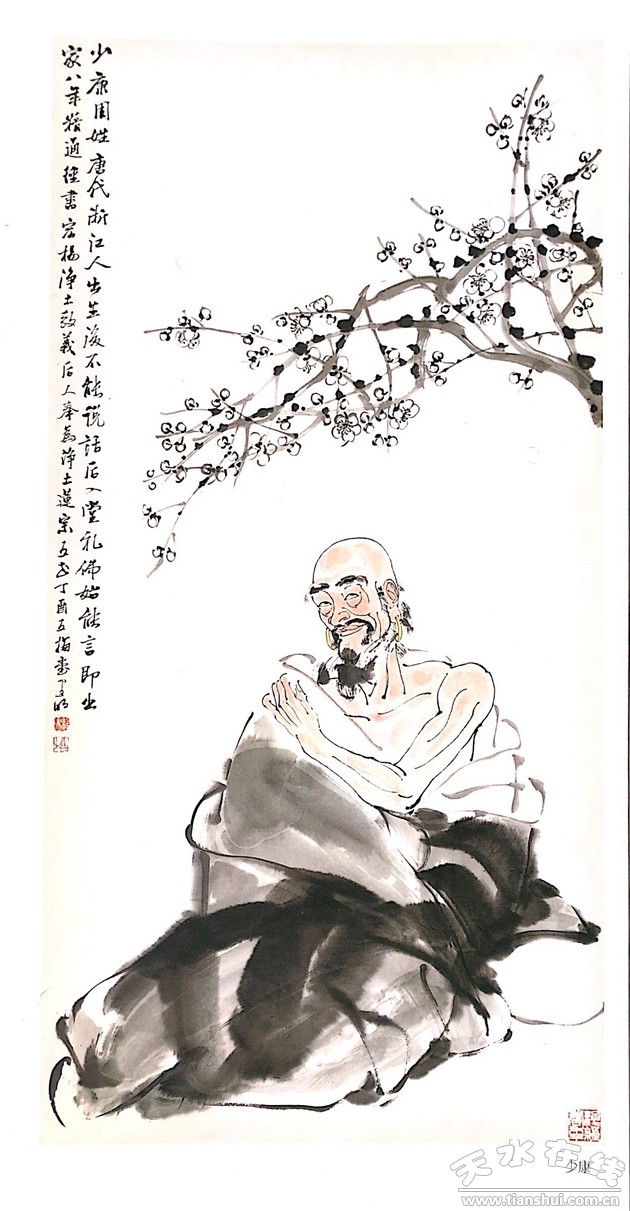 少康周姓唐代浙江人出生後不能说話后入堂礼佛始能言即出
家八年精通经書宏楊净土教義后人奉為净土蓮宗五
丁酉五梅
少康
天水在线
www.tianshui.com.cn